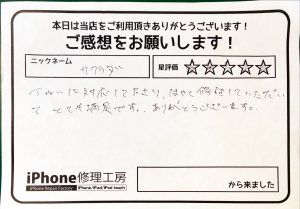 本日は当店をご利用頂きありがとうございます!
ご感想をお願いします!
ニックネーム
サクラダ
星評価
ていねいに対応して下さり、はやく修理していただい
て とても満足です。ありがとうございます。
iPhone修理工房
iPhone Repair Factory
iPhone/iPad/iPod touch
から来ました